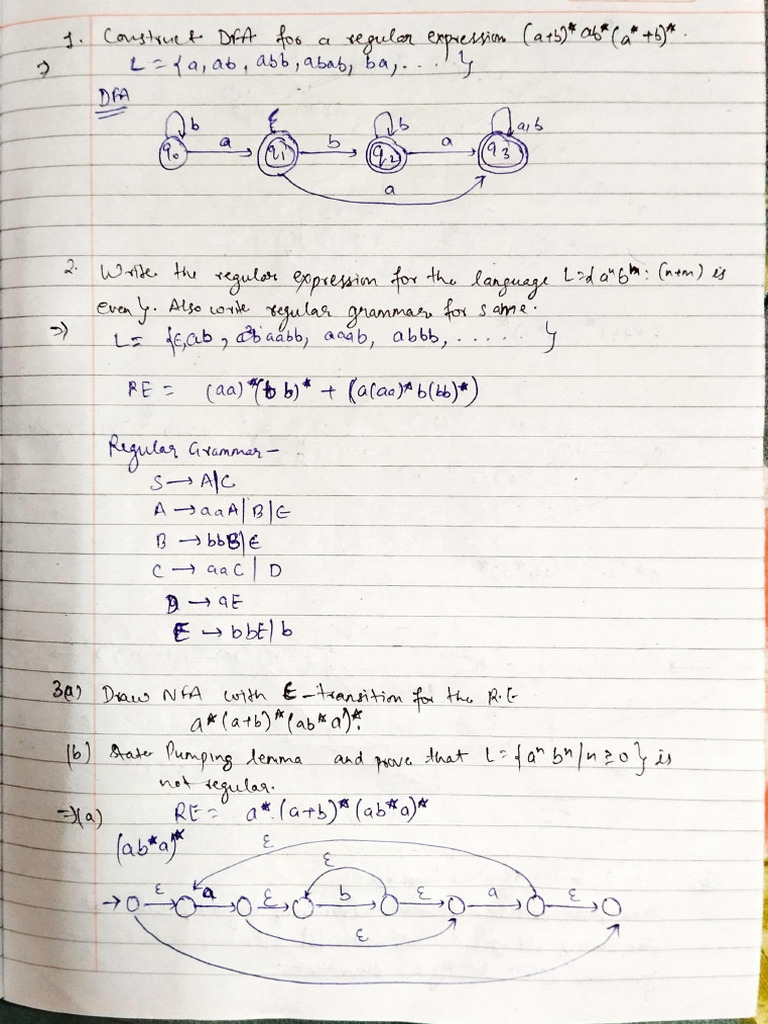 1. Construct DFA for a regular expression (a+b)* ab* (a* +b)*.
⇒ L = {a, ab, abb, abab, ba, .... }
DFA
b ε b a,b
q0 a q1 b q2 a q3
a
2. Write the regular expression for the language L={a^n b^m : (n+m) is
even}. Also write regular grammar for same.
⇒ L = {ε, ab, aabb, aaab, abbb, ..... }
RE = (aa)*(bb)* + (a(aa)* b(bb)*)
Regular Grammar -
S → A|C
A → aaA|B|ε
B → bbB|ε
C → aaC | D
D → aE
E → bbE|b
3(a) Draw NFA with ε-transition for the R.E
a* (a+b)* (ab* a)*.
(b) State Pumping lemma and prove that L = {a^n b^n | n ≥ 0} is
not regular.
⇒(a) RE = a*. (a+b)* (ab*a)*
(ab*a)*
ε
ε
ε a ε b ε a ε
ε